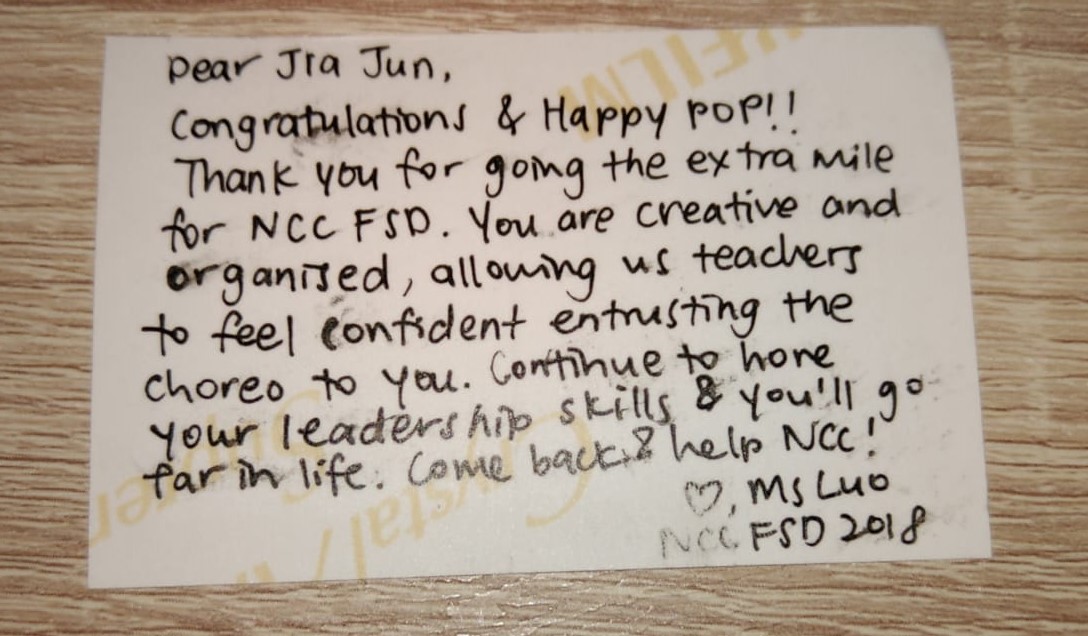 Dear Jia Jun,
Congratulations & Happy POP!!
Thank you for going the extra mile
for NCC FSD. You are creative and
organised, allowing us teachers
to feel confident entrusting the
choreo to you. Continue to hone
your leadership skills & you'll go
far in life. Come back & help NCC!
♡, Ms Luo
NCC FSD 2018